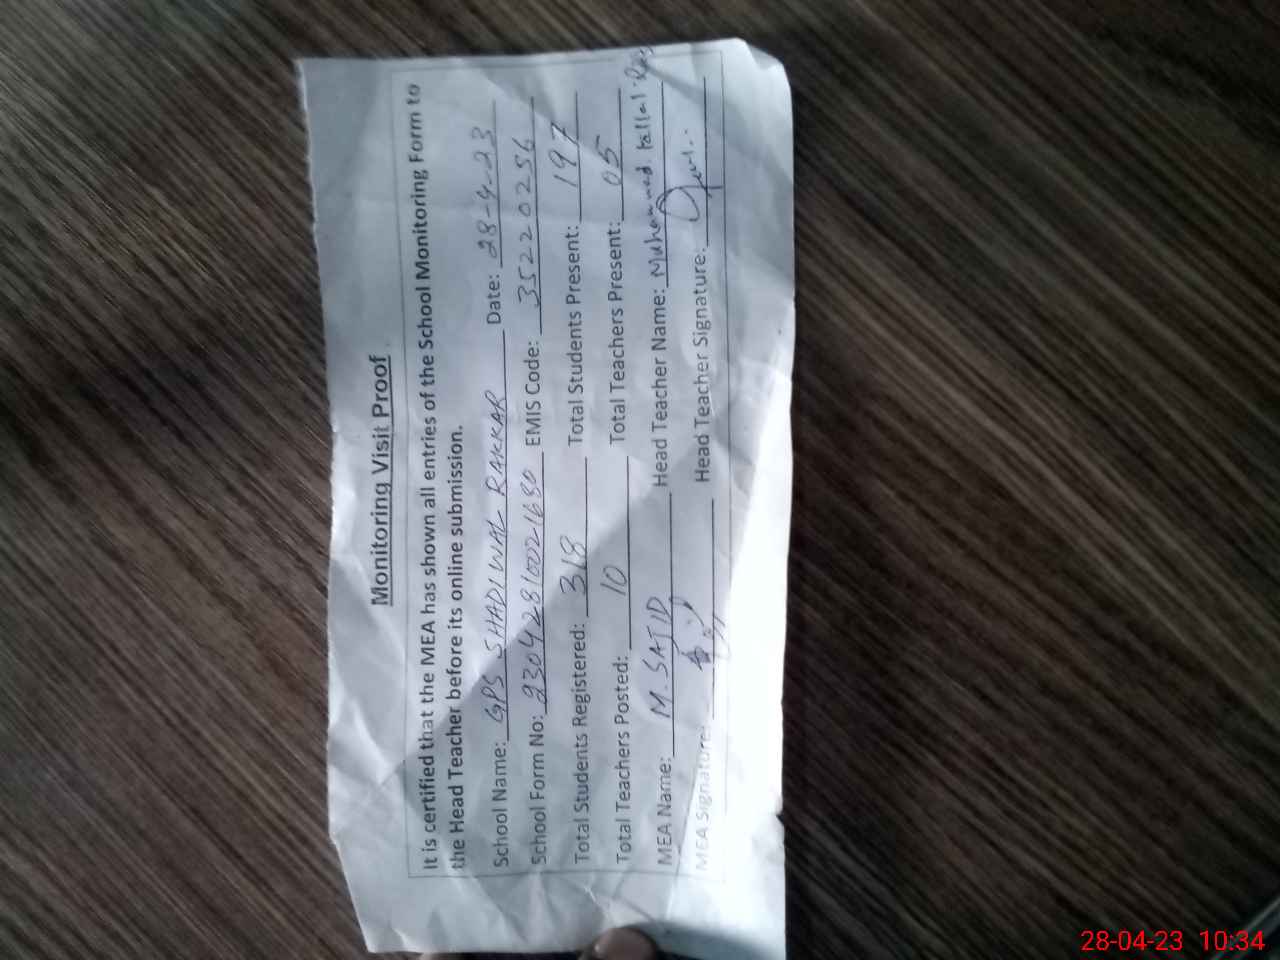 Monitoring Visit Proof
It is certified that the MEA has shown all entries of the School Monitoring Form to
the Head Teacher before its online submission.
School Name: GPS SHADIWAL RAKKAR Date: 28-4-23
School Form No: 230428100021680 EMIS Code: 35220256
Total Students Registered: 318 Total Students Present: 197
Total Teachers Posted: 10 Total Teachers Present: 05
MEA Name: M. SAJID Head Teacher Name: Muhammad
MEA Signature: Head Teacher Signature:
28-04-23 10:34